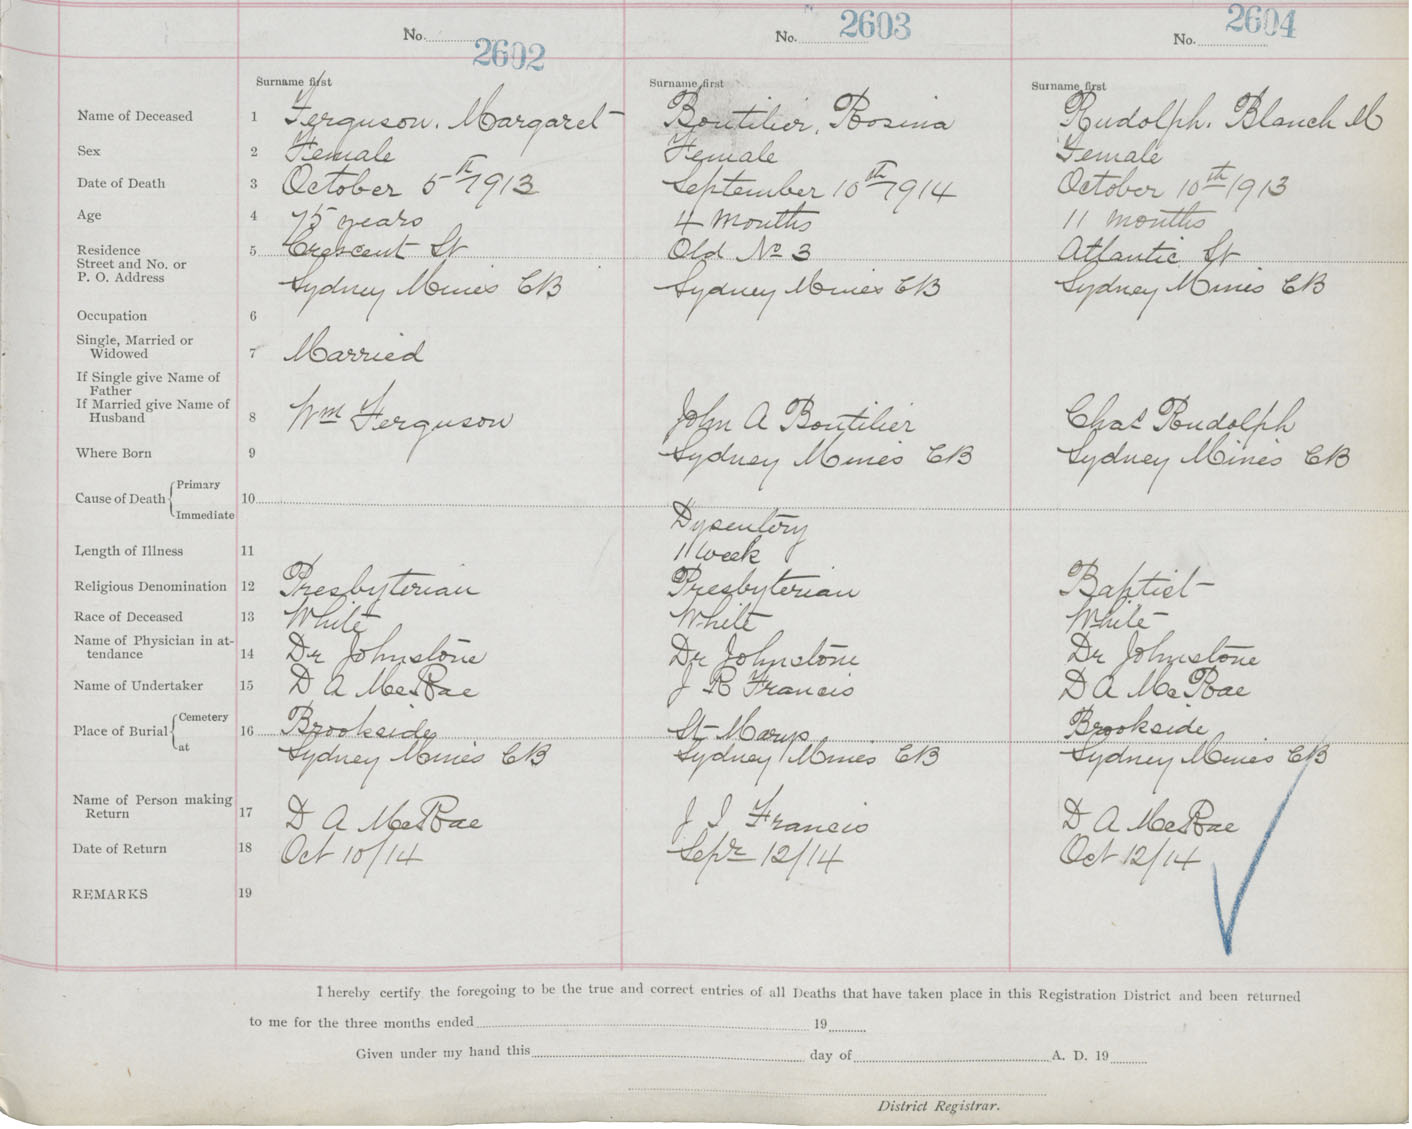 No. 2602 No. 2603 No. 2604
Surname first Surname first Surname first
Name of Deceased 1 Ferguson. Margaret Boutilier, Rosina Rudolph. Blanch M
Sex 2 Female Female Female
Date of Death 3 October 5th 1913 September 10th 1914 October 10th 1913
Age 4 75 years 4 months 11 months
Residence 5 Crescent St Old No 3 Atlantic St
Street and No. or
P. O. Address Sydney Mines CB Sydney Mines CB Sydney Mines CB
Occupation 6
Single, Married or
Widowed 7 Married
If Single give Name of
Father
If Married give Name of
Husband 8 Wm Ferguson John A Boutilier Chas Rudolph
Where Born 9 Sydney Mines CB Sydney Mines CB
Cause of Death Primary 10
Immediate Dysentery
Length of Illness 11 1 week
Religious Denomination 12 Presbyterian Presbyterian Baptist
Race of Deceased 13 White White White
Name of Physician in at-
tendance 14 Dr Johnstone Dr Johnstone Dr Johnstone
Name of Undertaker 15 D A McRae J R Francis D A McRae
Place of Burial Cemetery 16 Brookside St Marys Brookside
at Sydney Mines CB Sydney Mines CB Sydney Mines CB
Name of Person making
Return 17 D A McRae J J Francis D A McRae
Date of Return 18 Oct 10/14 Sepr 12/14 Oct 12/14
REMARKS 19
I hereby certify the foregoing to be the true and correct entries of all Deaths that have taken place in this Registration District and been returned
to me for the three months ended 19
Given under my hand this day of A. D. 19
District Registrar.